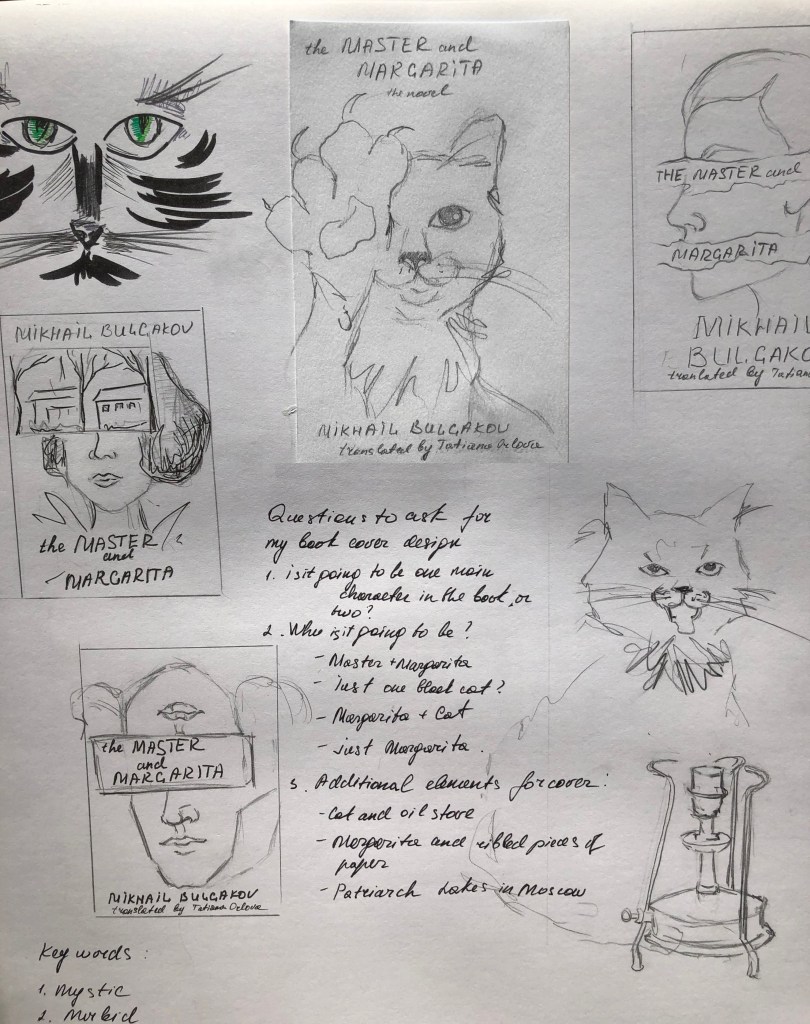 the MASTER and
MARGARITA
the novel
MIKHAIL BULGAKOV
translated by Tatiana Orlova
THE MASTER and
MARGARITA
MIKHAIL
BULGAKO
translated by Tatiana
MIKHAIL BULGAKOV
the MASTER
and
MARGARITA
the MASTER
and
MARGARITA
MIKHAIL BULGAKOV
translated by Tatiana Orlova
Questions to ask for
my book cover design
1. is it going to be one main
character in the book, or
two?
2. Who is it going to be?
- Master + Margarita
- Just one black cat?
- Margarita + Cat
- just Margarita.
3. Additional elements for cover:
- Cat and oil stove
- Margarita and ribbed pieces of
paper
- Patriarch Lakes in Moscow
Key words:
1. Mystic
2. Morbid